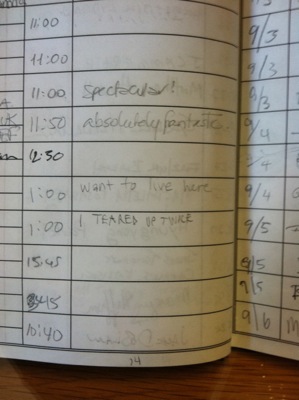 11:00
11:00
11:00 spectacular!
11:50 absolutely fantastic
12:30
1:00 want to live here
1:00 I TEARED UP TWICE
15:45
3:45
10:40
14
9/3
9/3
9/3
9/4
9/4
9/4
9/5
9/5
9/5
9/6